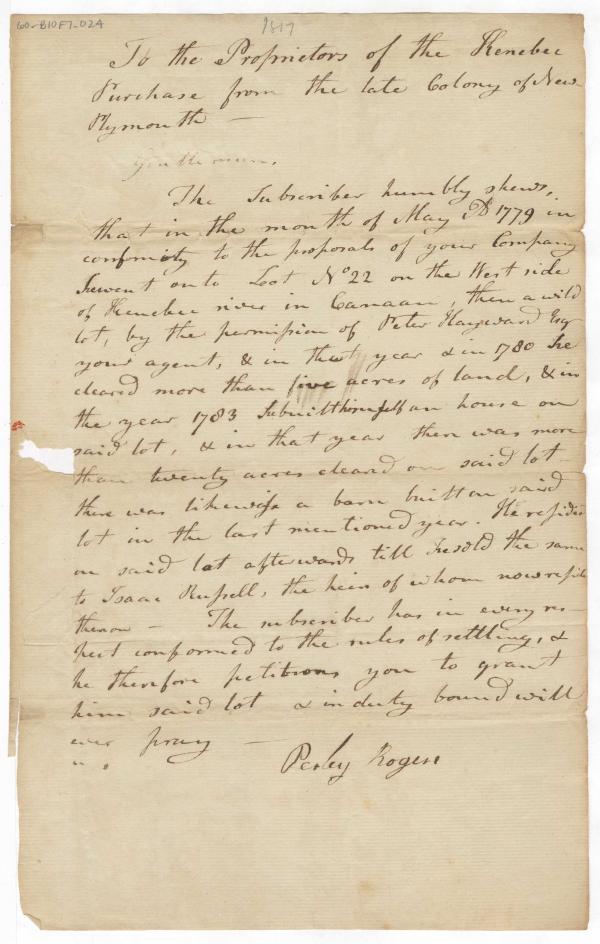 60-B10F7-024
1817
To the Proprietors of the Kenebec
Purchase from the late Colony of New-
Plymouth —
Gentlemen,
The Subscriber humbly shews,
that in the month of May AD 1779 in
conformity to the proposals of your Company
he went on to Lot No 22 on the West side
of Kenebec river in Canaan, then a wild
lot, by the permission of Peter Hayward Esqr
your agent, & in that year & in 1780 he
cleared more than five acres of land, & in
the year 1783 he built himself an house on
said lot, & in that year there was more
than twenty acres cleared on said lot
there was likewise a barn built on said
lot in the last mentioned year. He resides
on said lot afterwards till he sold the same
to Isaac Russell, the heirs of whom now reside
thereon — The subscriber has in every res-
pect conformed to the rules of settling, &
he therefore petitions you to grant
him said lot & in duty bound will
ever pray —
Perley Rogers